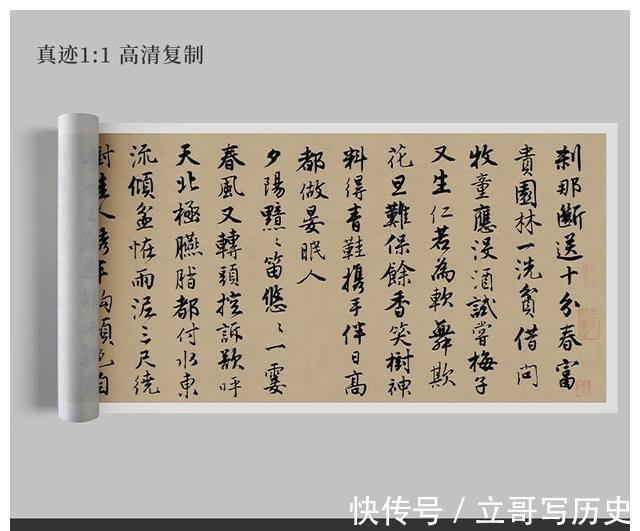 真迹1:1 高清复制
刹那斷送十分春富
貴園林一洗貧借問
牧童應沒酒試嘗梅子
又生仁若為軟舞欺
花旦難保餘香笑樹神
料得青鞋攜手伴日高
都做晏眠人
夕陽黯〻笛悠〻一霎
春風又轉頭控訴欲呼
天北極臙脂都付水東
流傾盆怪雨泥三尺繞
人
自
快传号 / 立哥写历史